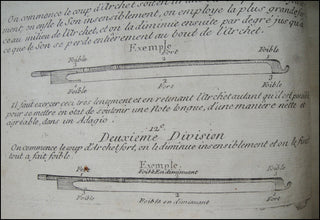 On commence le coup d'Archet
ment, on enfle le Son insensiblement, on employe la plus grande for-
ce au milieu de l'Archet, et on la diminue ensuite par degré jus qu'à
ce que le Son se perde entierement au bout de l'Archet.
Exemple
Foible Fort Foible
Foible Fort Foible
Il faut exercer ceci tres lentement et en retenant l'Archet autant qu'il est
pour se mettre en état de soutenir une Note longue, d'une maniere nette et
agréable, dans un Adagio.
12e
Deuxieme Division
On commence le coup d'Archet fort, on le diminue insensiblement et on le
tout a fait foible.
Exemple
Foible en diminuant
Foible Foible en diminuant Fort